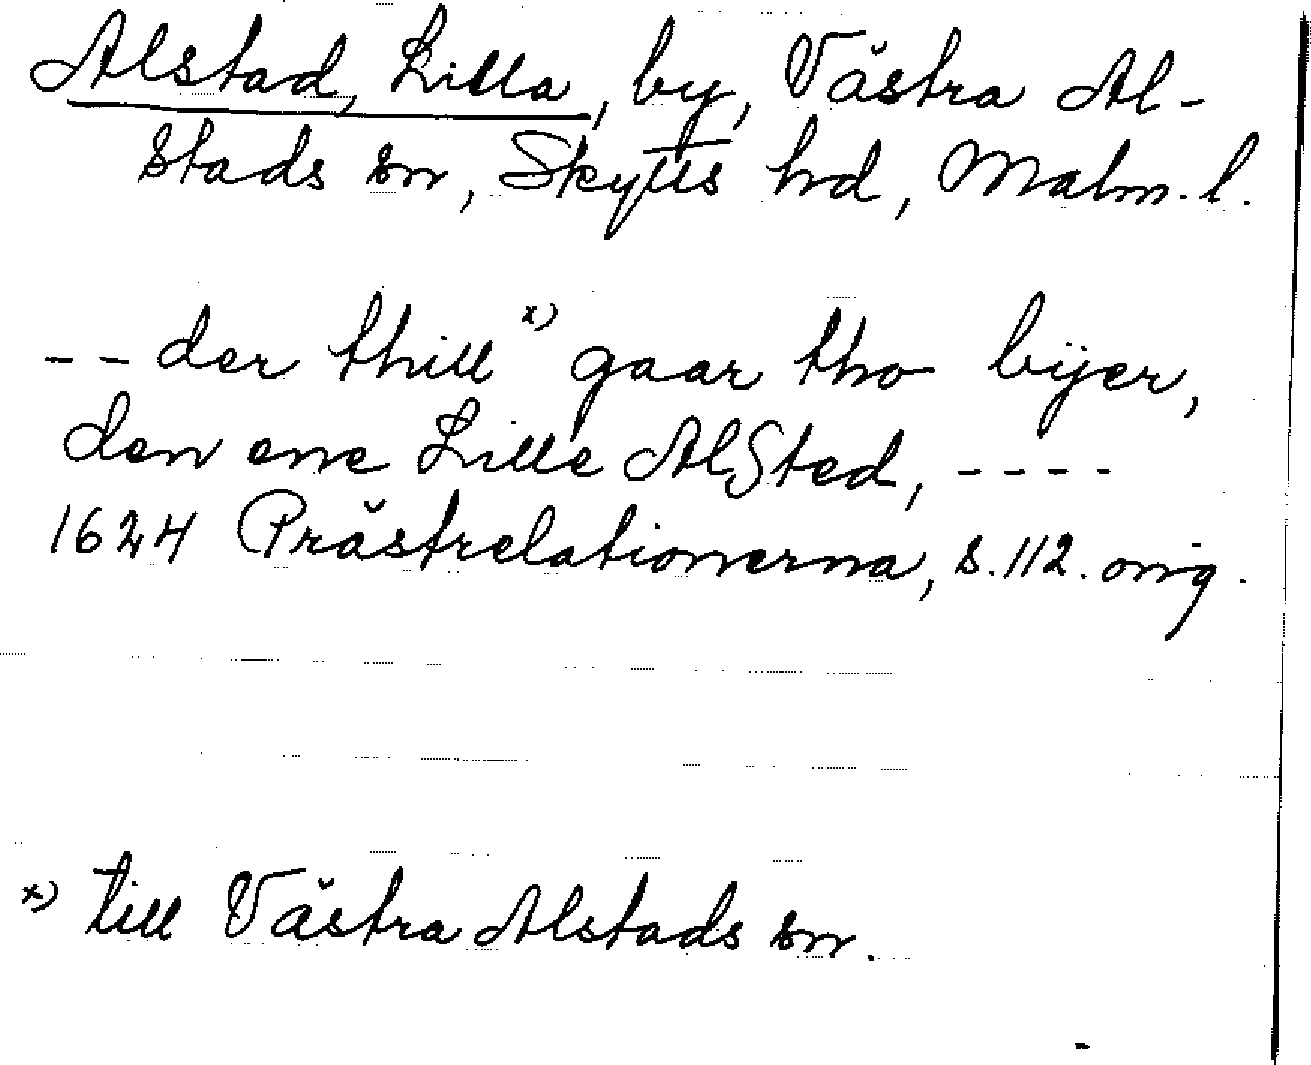 Alstad, Lilla, by, Västra Al-
stads sn, Skytts hd, Malm. l.
-- der thill x) gaar tho bÿer,
den ene Lille AlSted, ----
1624 Prästrelationerna, s. 112. orig.
x) till Västra Alstads sn.